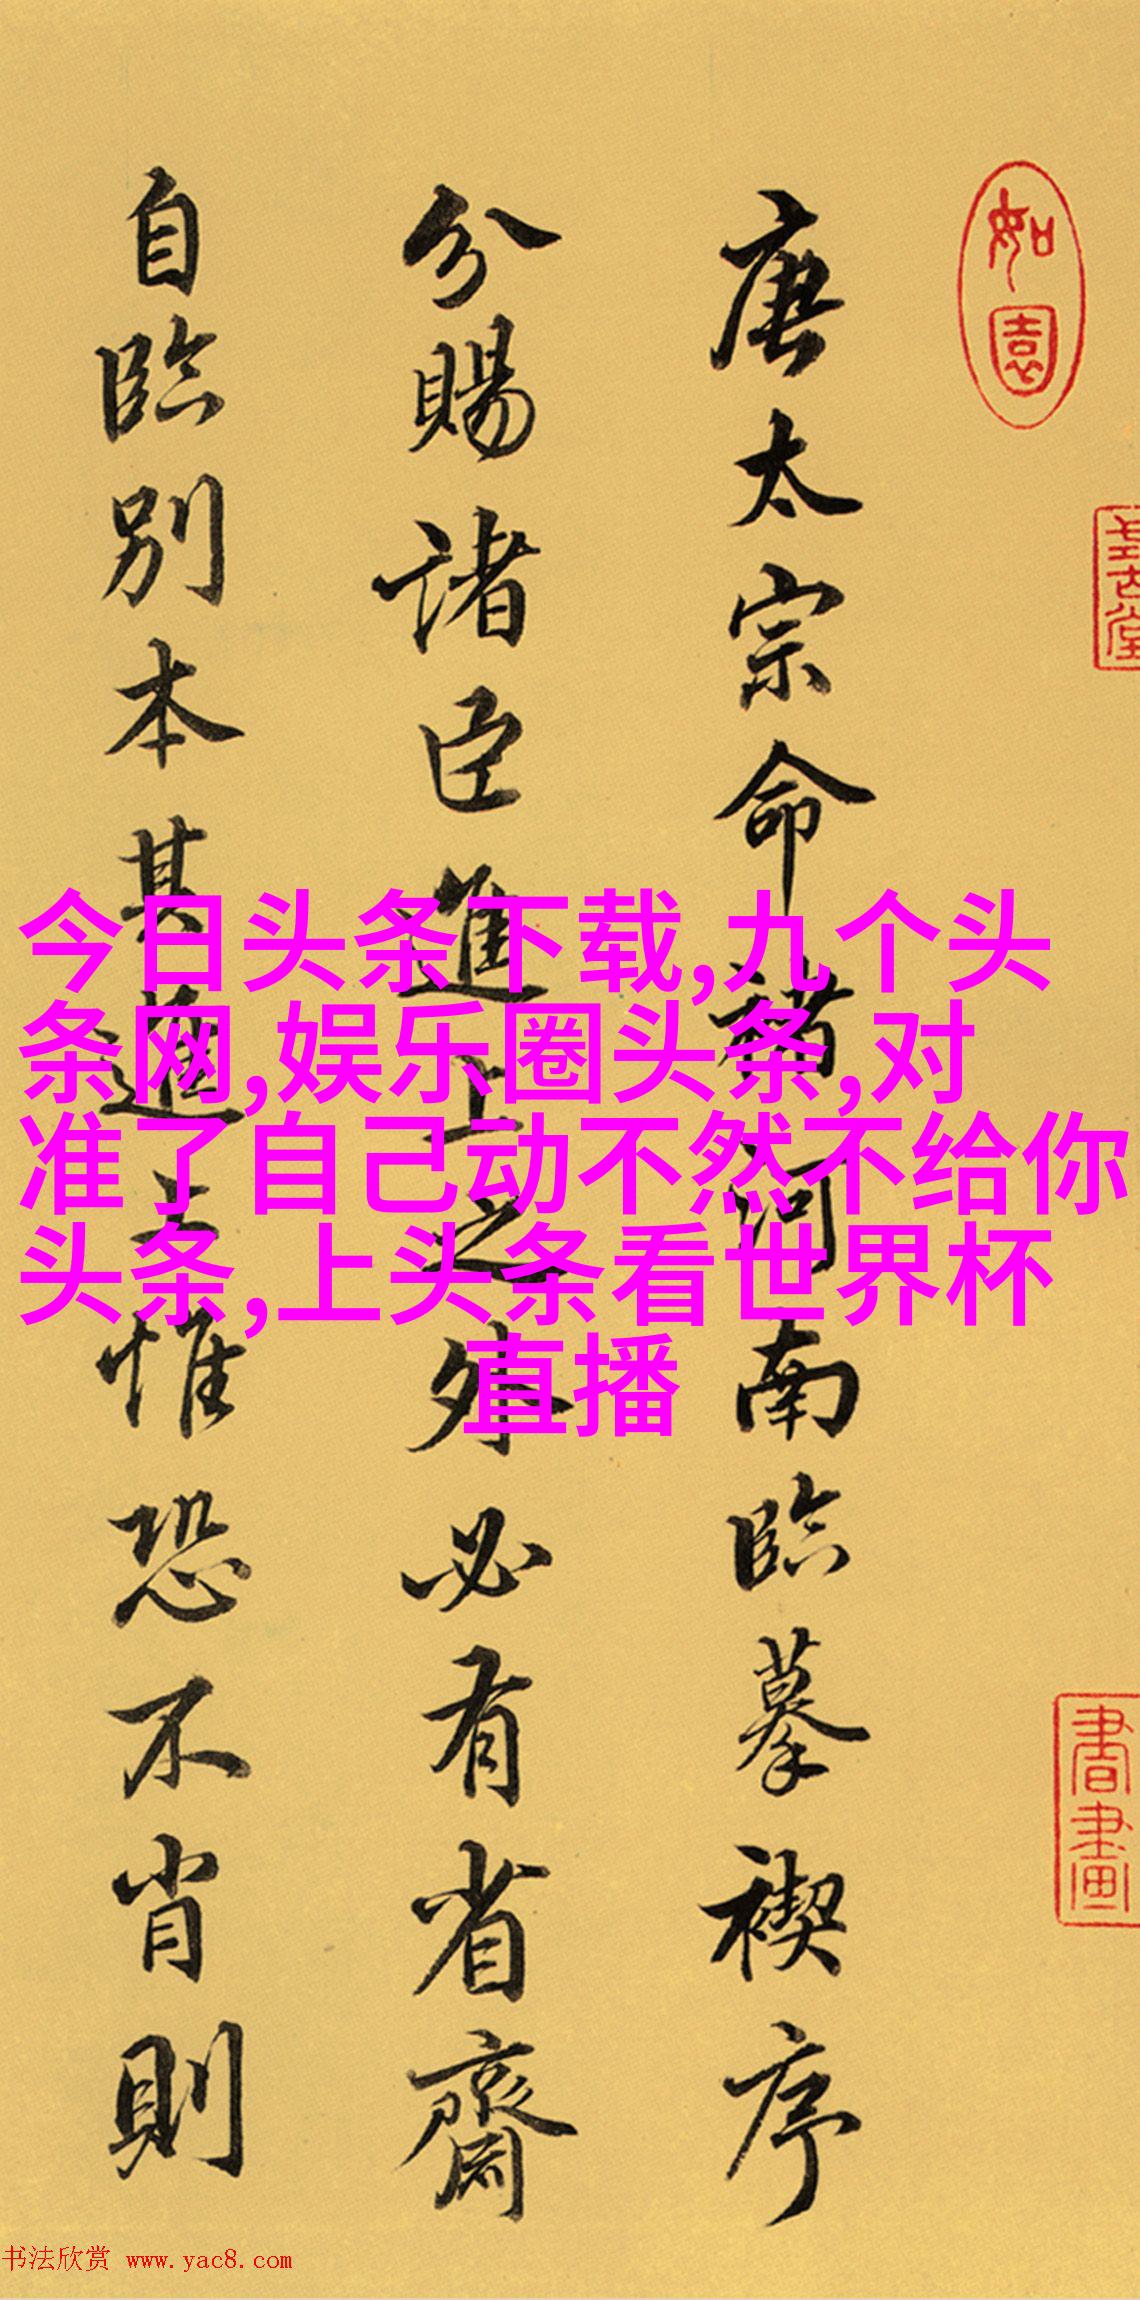 唐太宗命褚河南臨摹禊序
分賜諸臣進上之外必有省齋
自臨別本其進上惟恐不肖則
如園
書畫
今日头条下载,九个头
条网,娱乐圈头条,对
准了自己动不然不给你
头条,上头条看世界杯
直播
书法欣赏 www.yac8.com